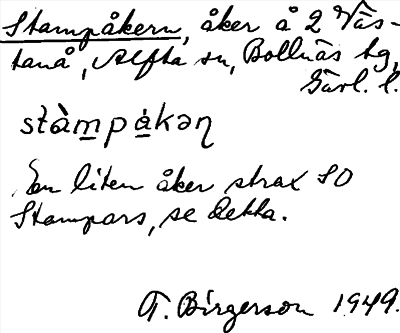 Stampåkern, åker å 2 Väs-
tanå, Alfta sn, Bollnäs tg,
Gävl. l.
stàmpákəɳ
En liten åker strax SO
Stampars, se detta.
T. Birgerson 1949.